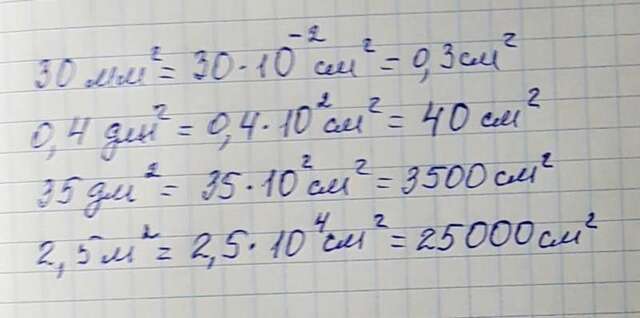 30 мм² = 30·10⁻² см² = 0,3 см²
0,4 дм² = 0,4·10² см² = 40 см²
35 дм² = 35·10² см² = 3500 см²
2,5 м² = 2,5·10⁴ см² = 25000 см²